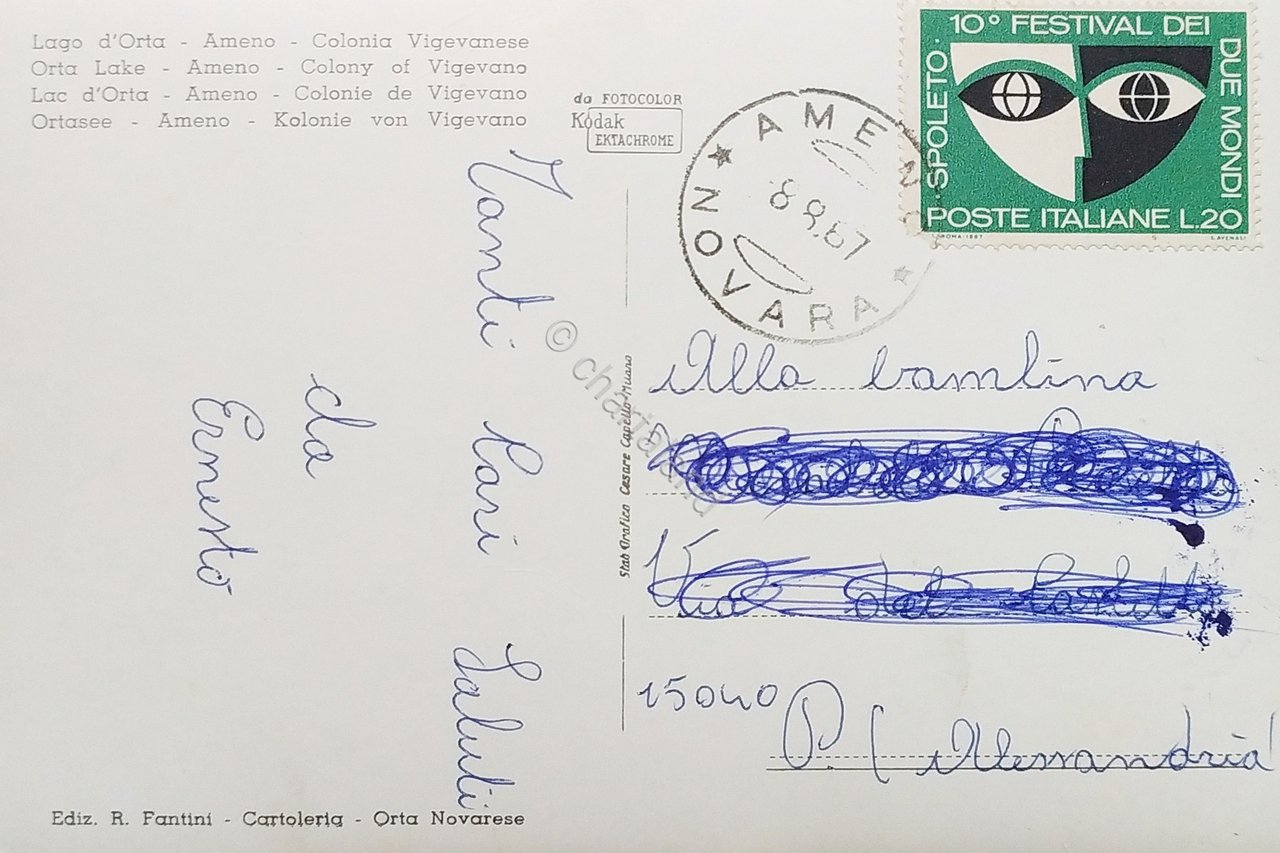 Lago d'Orta - Ameno - Colonia Vigevanese
Orta Lake - Ameno - Colony of Vigevano
Lac d'Orta - Ameno - Colonie de Vigevano
Ortasee - Ameno - Kolonie von Vigevano
da FOTOCOLOR
Kodak
EKTACHROME
AMENO
8.8.67
NOVARA
10° FESTIVAL DEI
DUE MONDI
SPOLETO.
POSTE ITALIANE L.20
ROMA-1967
L. AVENALI
Tanti Cari Saluti
da
Ernesto
Stab Grafico Cesare Capello-Milano
Alla bambina
Via del
15040
P. (Alessandria
Ediz. R. Fantini - Cartoleria - Orta Novarese